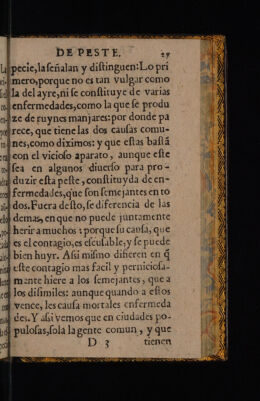 DE PESTE. 27
pecie, la señalan y distinguen: Lo pri
mero, porque no es tan vulgar como
la del ayre, ni se constituye de varias
enfermedades, como la que se produ
ze de ruynes manjares: por donde pa
rece, que tiene las dos causas comu-
nes, como diximos: y que estas bastã
con el vicioso aparato, aunque este
sea en algunos diuerso para pro-
duzir esta peste, constituyda de en-
fermedades, q̃ue son semejantes en to
dos. Fuera desto, se diferencia de las
demas, en que no puede juntamente
herir a muchos: porque su causa, que
es el contagio, es escusable, y se puede
bien huyr. Assi mismo difieren en q̃
este contagio mas facil y perniciosa-
mante hiere a los semejantes, que a
los disimiles: aunque quando a estos
vence, les causa mortales enfermeda
des. Y assi vemos que en ciudades po-
pulosas, sola la gente comun, y que
D 3 tienen